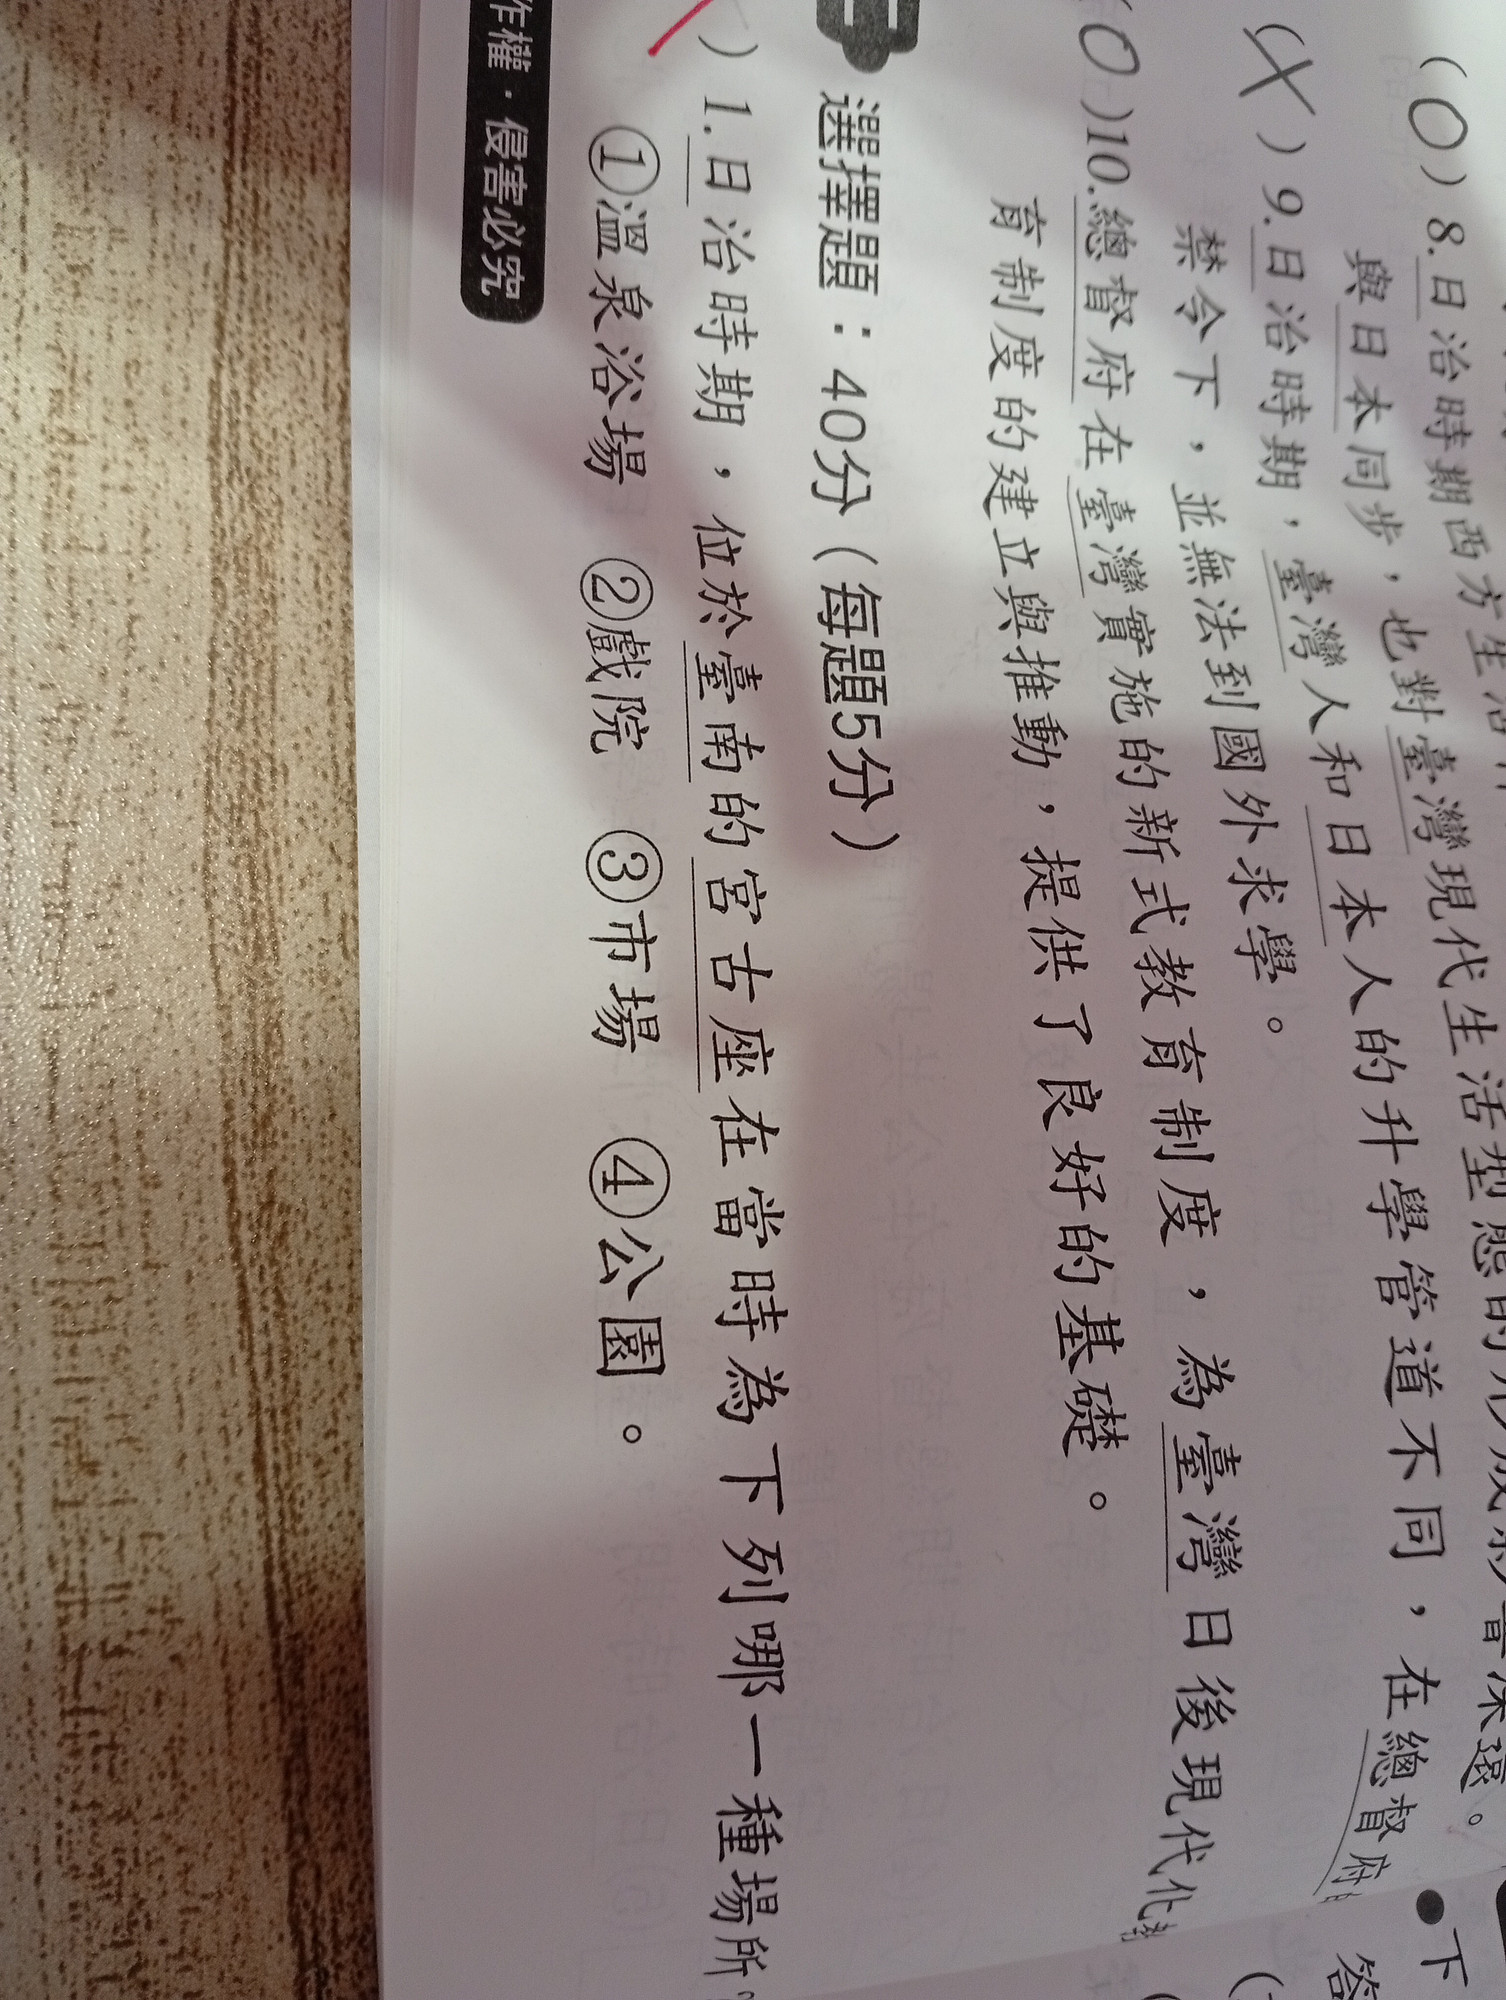 (O) 8.日治時期西方生活
與日本同步，也對臺灣現代生活型態的形成影響深遠。
(X) 9.日治時期，臺灣人和日本人的升學管道不同，在總督府
禁令下，並無法到國外求學。
(O)10.總督府在臺灣實施的新式教育制度，為臺灣日後現代化教
育制度的建立與推動，提供了良好的基礎。
選擇題：40分（每題5分）
) 1.日治時期，位於臺南的宮古座在當時為下列哪一種場所？
①溫泉浴場 ②戲院 ③市場 ④公園。
作權·侵害必究
●下
答